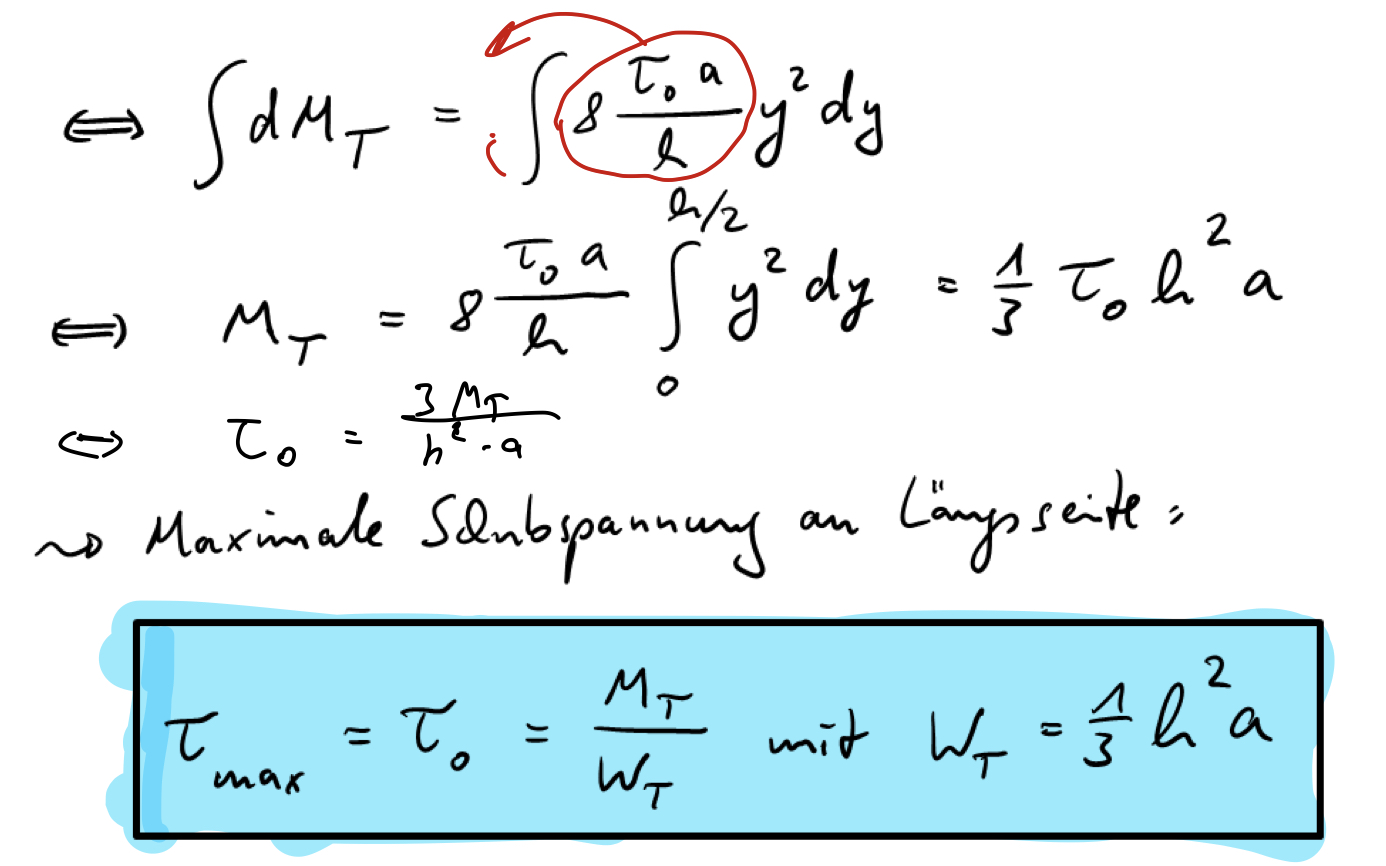 ⟺ ∫ dM_T = ∫ 8 (τ₀ a)/h y² dy
⟺ M_T = 8 (τ₀ a)/h ∫₀^{h/2} y² dy = 1/3 τ₀ h² a
⟺ τ₀ = (3 M_T)/(h² · a)
⇝ Maximale Schubspannung an Längsseite:
τ_max = τ₀ = M_T/W_T mit W_T = 1/3 h² a